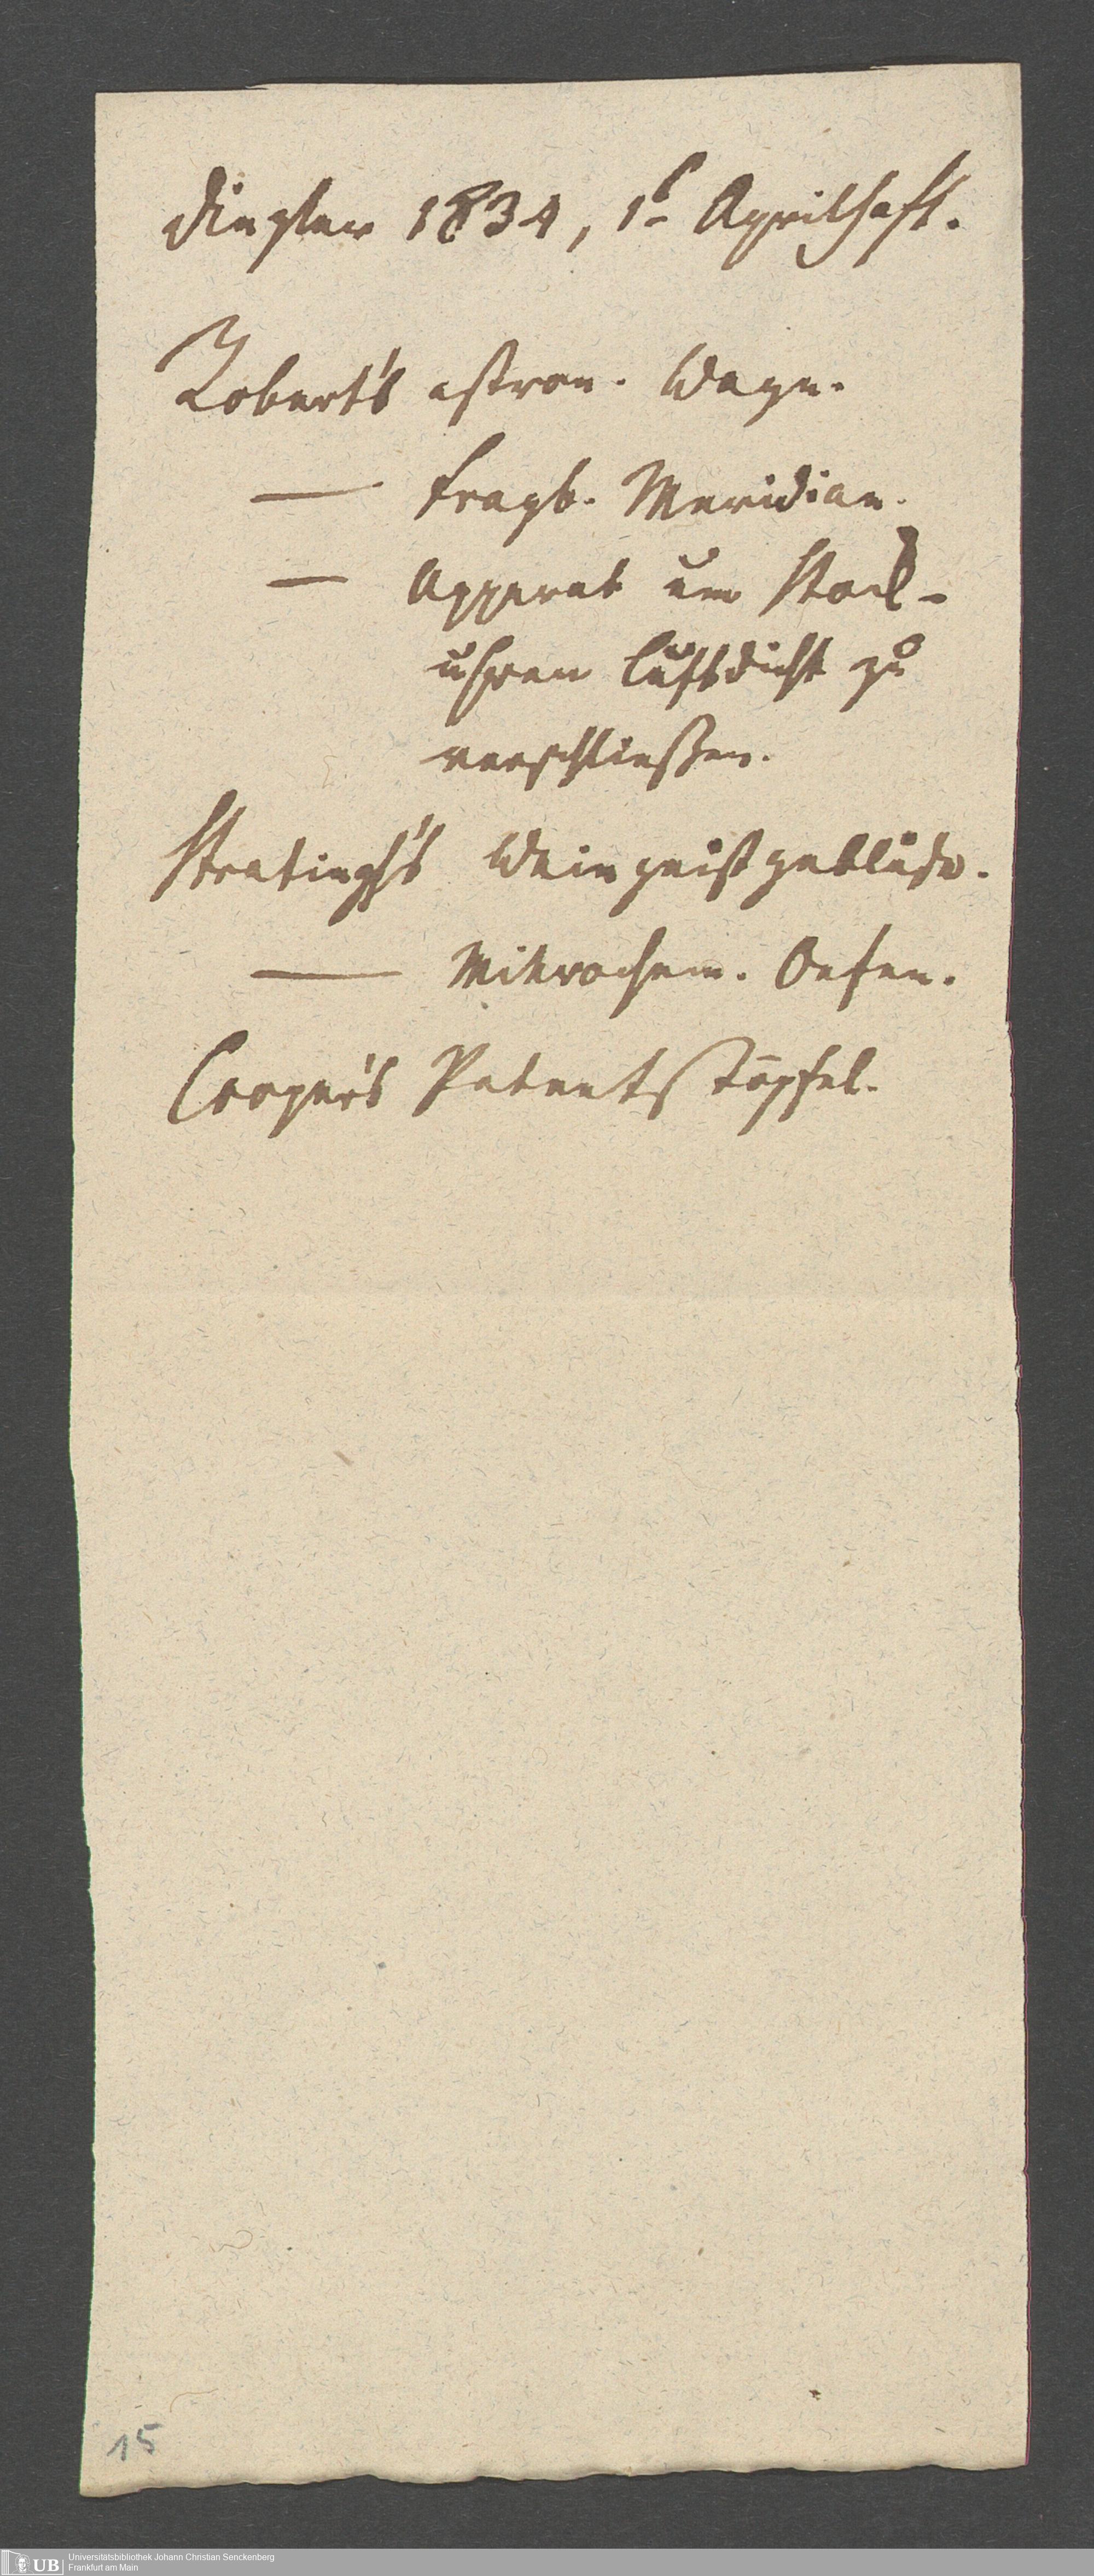 Dingler 1834, 1s Aprilheft.
Robert's astron. Wage.
— tragb. Meridian.
— Apparat um Stock-
uhren luftdicht zu
verschließen.
Stratingh's Weingeistgebläse.
— Mikrochem. Oefen.
Cooper's Patentstöpsel.
15
UB
Universitätsbibliothek Johann Christian Senckenberg
Frankfurt am Main